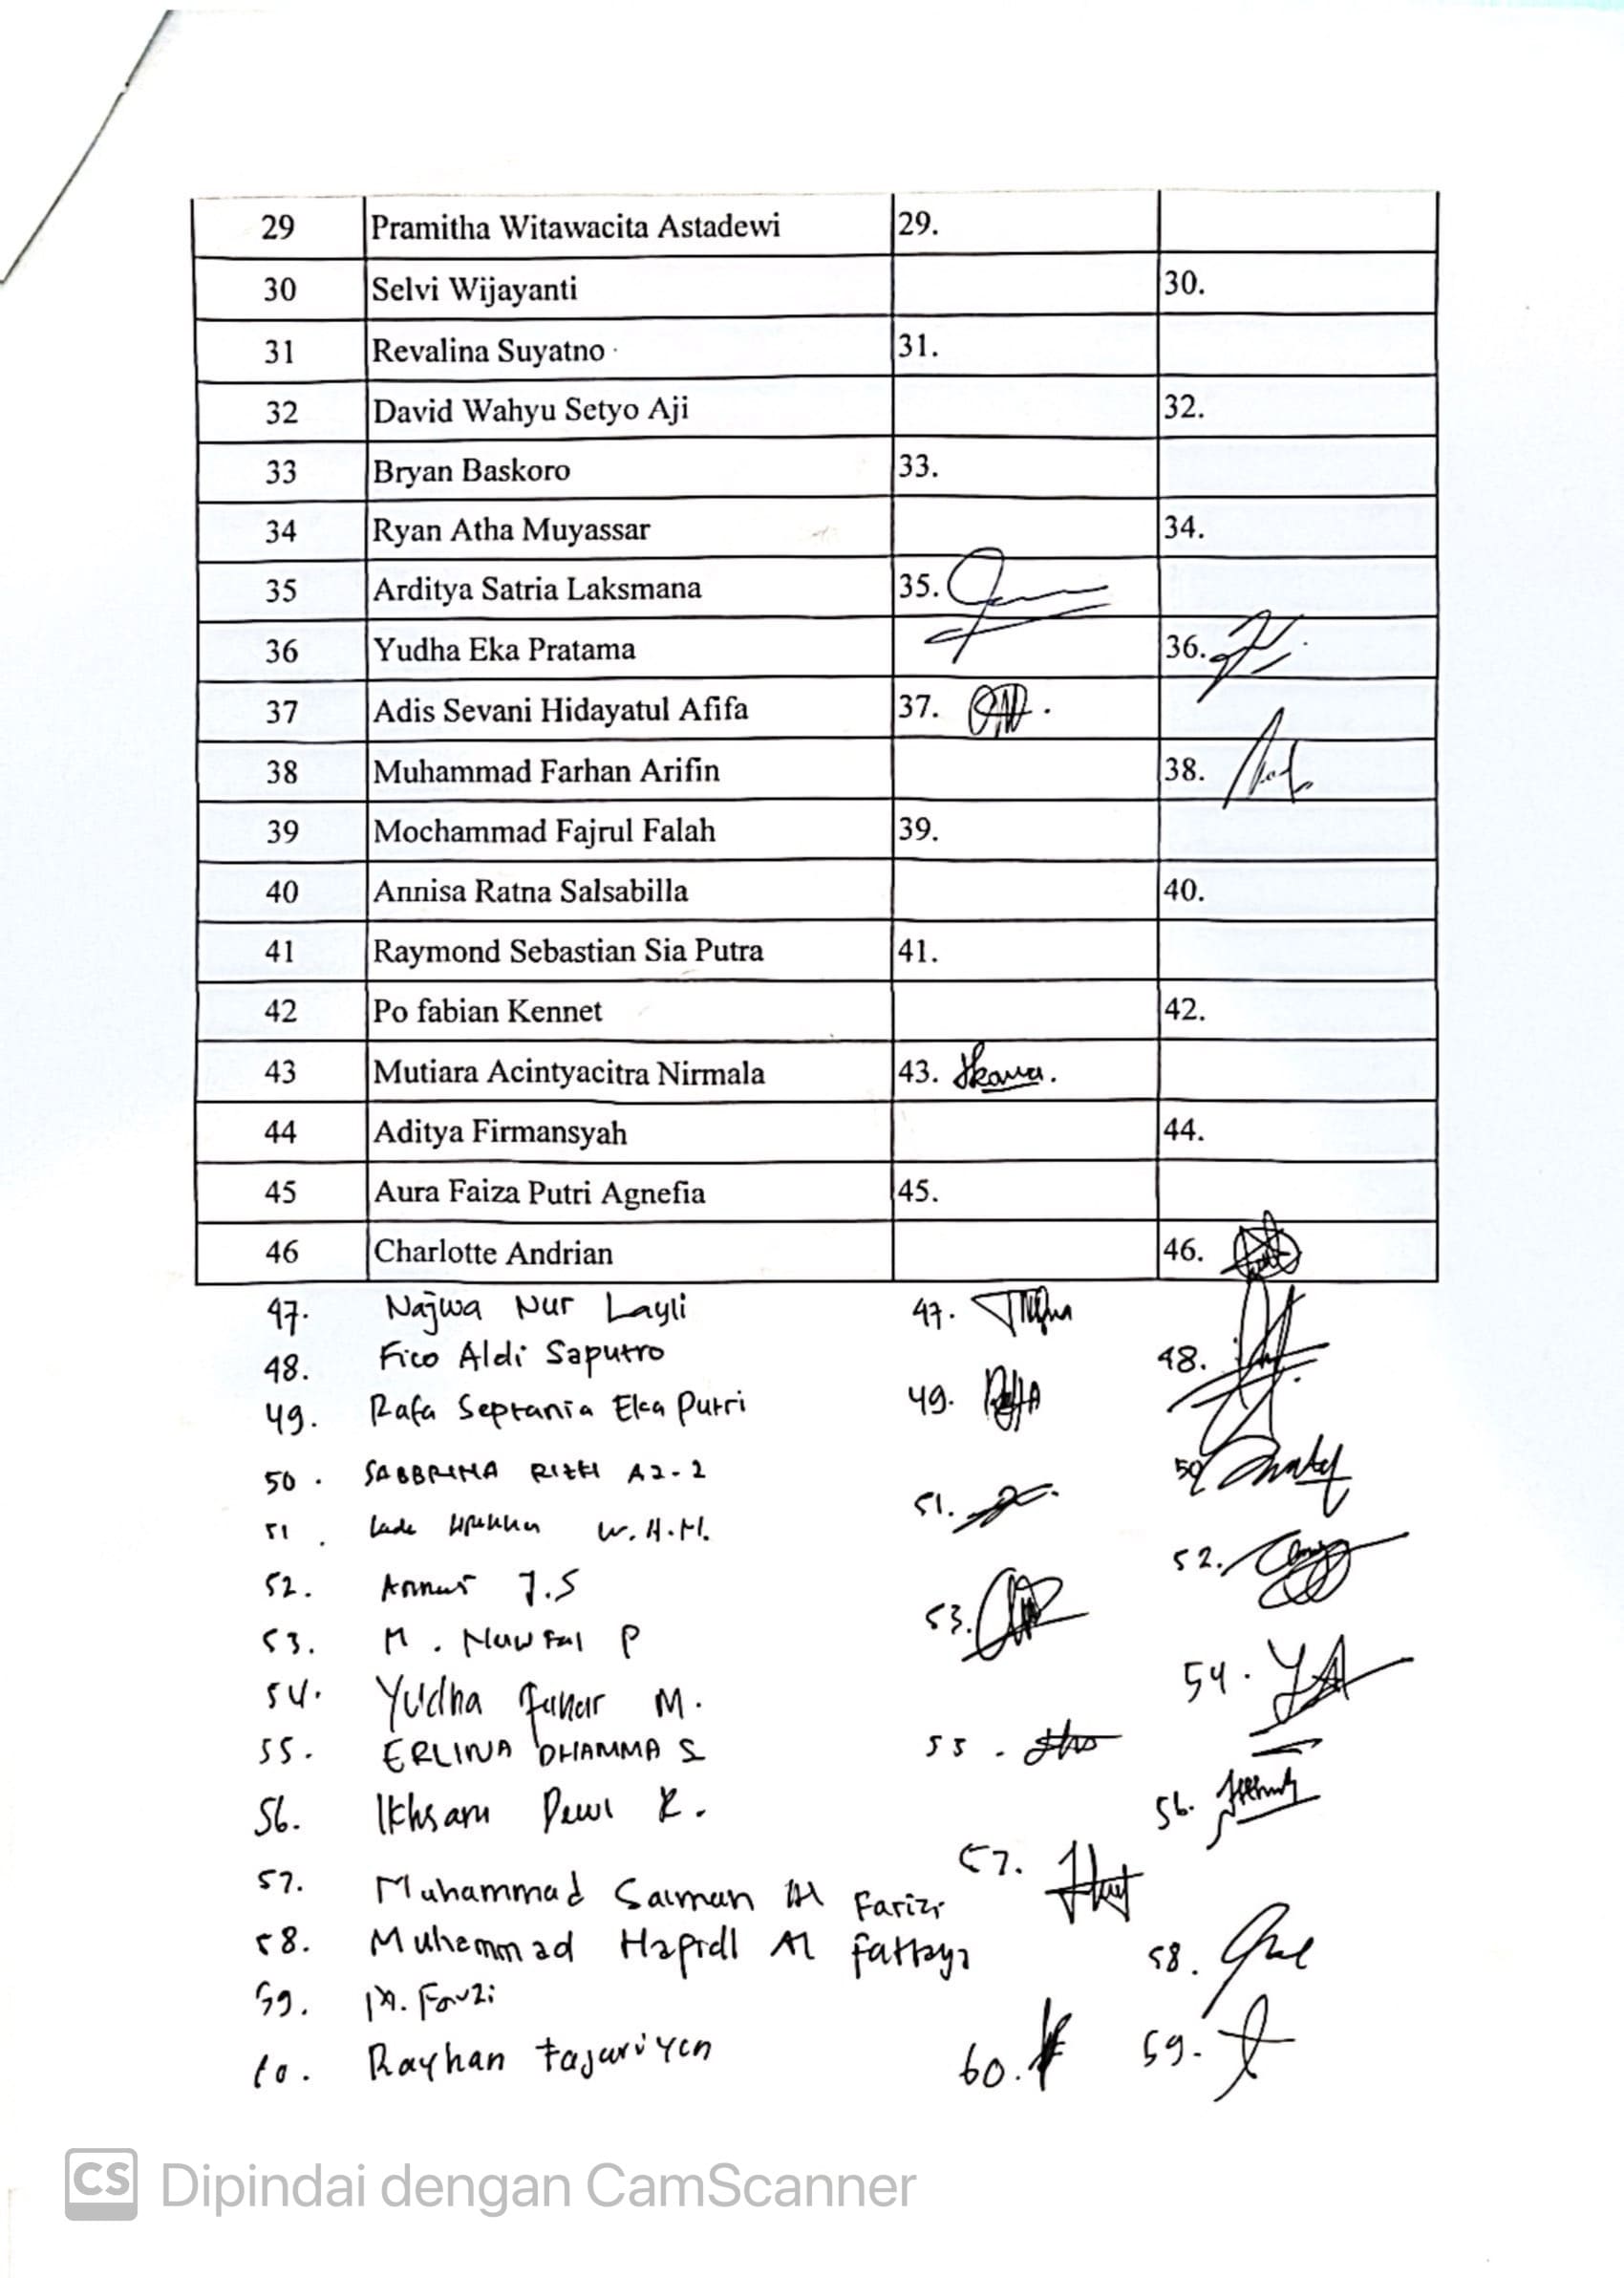 29 Pramitha Witawacita Astadewi 29.
30 Selvi Wijayanti 30.
31 Revalina Suyatno 31.
32 David Wahyu Setyo Aji 32.
33 Bryan Baskoro 33.
34 Ryan Atha Muyassar 34.
35 Arditya Satria Laksmana 35.
36 Yudha Eka Pratama 36.
37 Adis Sevani Hidayatul Afifa 37.
38 Muhammad Farhan Arifin 38.
39 Mochammad Fajrul Falah 39.
40 Annisa Ratna Salsabilla 40.
41 Raymond Sebastian Sia Putra 41.
42 Po fabian Kennet 42.
43 Mutiara Acintyacitra Nirmala 43.
44 Aditya Firmansyah 44.
45 Aura Faiza Putri Agnefia 45.
46 Charlotte Andrian 46.
47. Najwa Nur Layli 47.
48. Fico Aldi Saputro 48.
49. Rafa Septania Eka Putri 49.
50. SABBRINA RIZKI A2-2 50
51. W.H.M. 51.
52. J.S 52.
53. M. Nawfal P 53.
54. Yudha M. 54.
55. ERLINA DHAMMA S 55.
56. Ikhsam Dewi K. 56.
57. Muhammad Salman Al Farizi 57.
58. Muhammad Al 58.
59. M. Fauzi 59.
60. Rayhan 60.
CS Dipindai dengan CamScanner